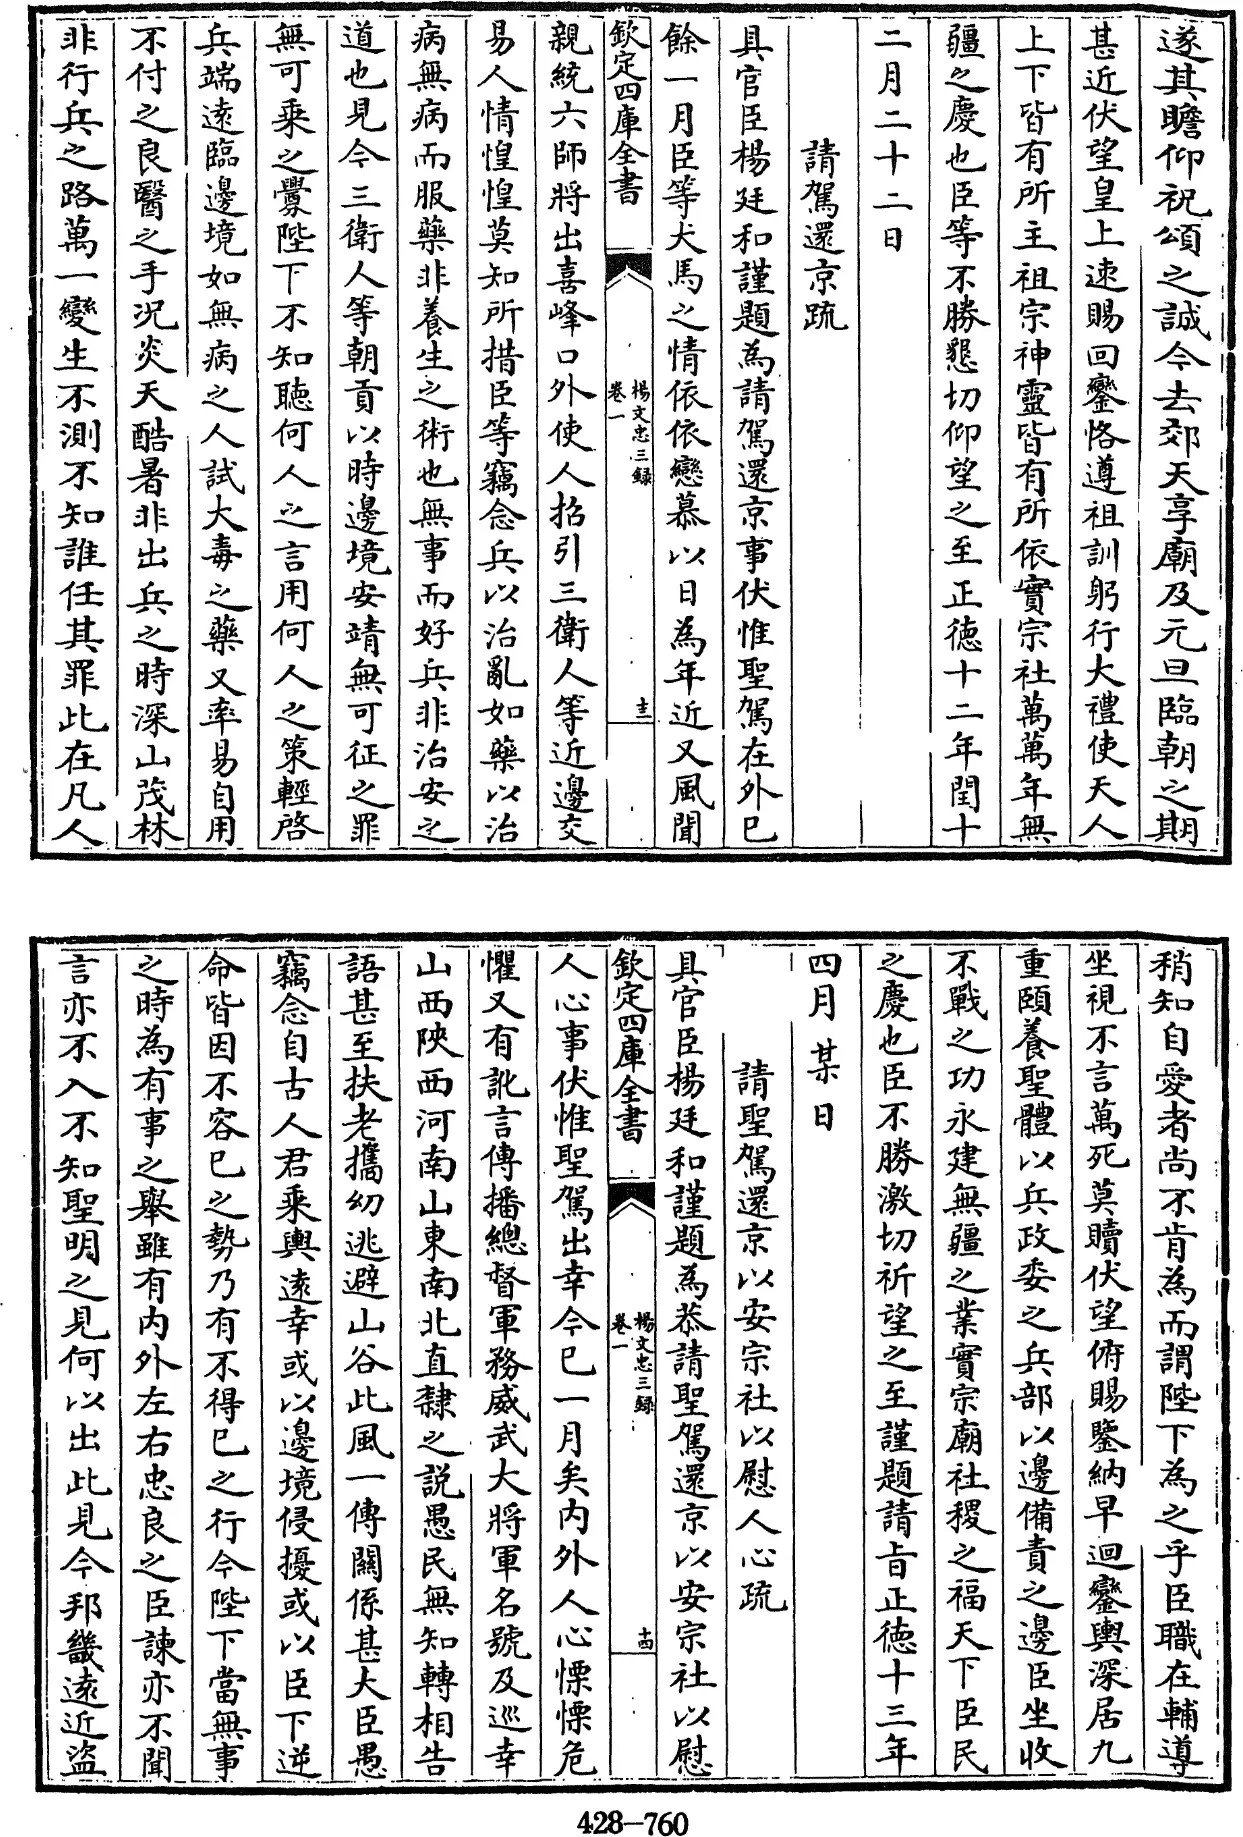 遂其瞻仰祝頌之誠今去郊天享廟及元旦臨朝之期
甚近伏望皇上速賜回鑾恪遵祖訓躬行大禮使天人
上下皆有所主祖宗神靈皆有所依實宗社萬萬年無
疆之慶也臣等不勝懇切仰望之至正德十二年閏十
二月二十二日
請駕還京疏
具官臣楊廷和謹題為請駕還京事伏惟聖駕在外已
餘一月臣等犬馬之情依依戀慕以日為年近又風聞
欽定四庫全書
楊文忠三録
卷一
十三
親統六師將出喜峰口外使人招引三衛人等近邊交
易人情惶惶莫知所措臣等竊念兵以治亂如藥以治
病無病而服藥非養生之術也無事而好兵非治安之
道也見今三衛人等朝貢以時邊境安靖無可征之罪
無可乘之釁陛下不知聽何人之言用何人之策輕啓
兵端遠臨邊境如無病之人試大毒之藥又率易自用
不付之良醫之手況炎天酷暑非出兵之時深山茂林
非行兵之路萬一變生不測不知誰任其罪此在凡人
稍知自愛者尚不肯為而謂陛下為之乎臣職在輔導
坐視不言萬死莫贖伏望俯賜鑒納早迴鑾輿深居九
重頤養聖體以兵政委之兵部以邊備責之邊臣坐收
不戰之功永建無疆之業實宗廟社稷之福天下臣民
之慶也臣不勝激切祈望之至謹題請旨正德十三年
四月某日
請聖駕還京以安宗社以慰人心疏
具官臣楊廷和謹題為恭請聖駕還京以安宗社以慰
欽定四庫全書
楊文忠三録
卷一
十四
人心事伏惟聖駕出幸今已一月矣内外人心慄慄危
懼又有訛言傳播總督軍務威武大將軍名號及巡幸
山西陜西河南山東南北直隸之說愚民無知轉相告
語甚至扶老攜幼逃避山谷此風一傳關係甚大臣愚
竊念自古人君乘輿遠幸或以邊境侵擾或以臣下逆
命皆因不容已之勢乃有不得已之行今陛下當無事
之時為有事之舉雖有内外左右忠良之臣諫亦不聞
言亦不入不知聖明之見何以出此見今邦畿遠近盜
428-760